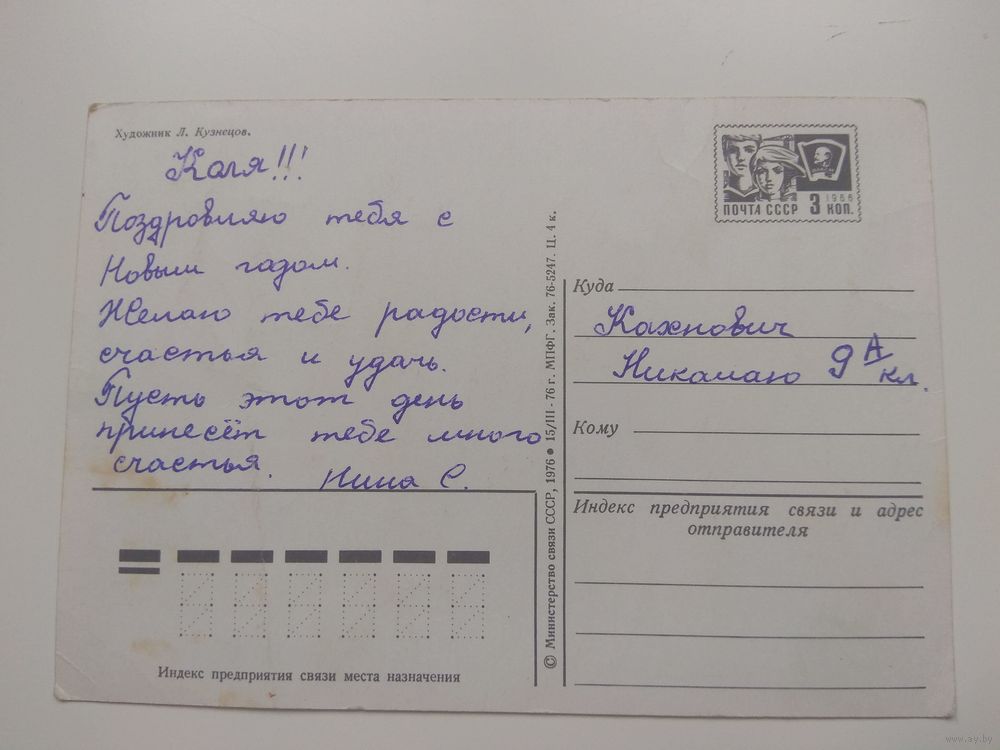 Художник Л. Кузнецов.
Коля!!!
Поздровляю тебя с
Новым годом.
Желаю тебе радости,
счастья и удачь.
Пусть этот день
принесёт тебе много
счастья.
Нина С.
Индекс предприятия связи места назначения
© Министерство связи СССР, 1976 ● 15/III - 76 г. МПФГ. Зак. 76-5247. Ц. 4 к.
1966
ПОЧТА СССР 3 КОП.
Куда
Кахнович
Никалаю 9 А кл.
Кому
Индекс предприятия связи и адрес
отправителя
www.ay.by